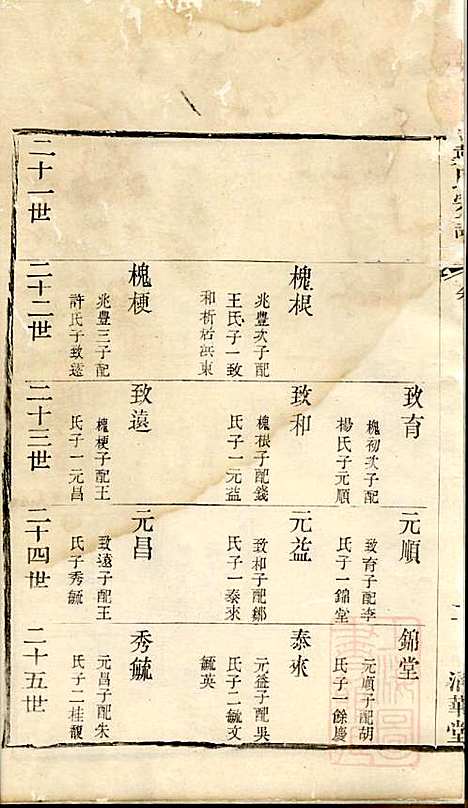 氏宗譜
清華堂
致育
槐初次子配
楊氏子元順
元順
致育子配李
氏子一錦堂
錦堂
元順子配胡
氏子一餘慶
槐根
兆豐次子配
王氏子一致
和析居洪東
致和
槐根子配錢
氏子一元益
元益
致和子配鄒
氏子一泰來
泰來
元益子配吳
氏子二毓文
毓英
槐梗
兆豐三子配
許氏子致遠
致遠
槐梗子配王
氏子一元昌
元昌
致遠子配王
氏子秀毓
秀毓
元昌子配朱
氏子二桂馥
二十一世
二十二世
二十三世
二十四世
二十五世